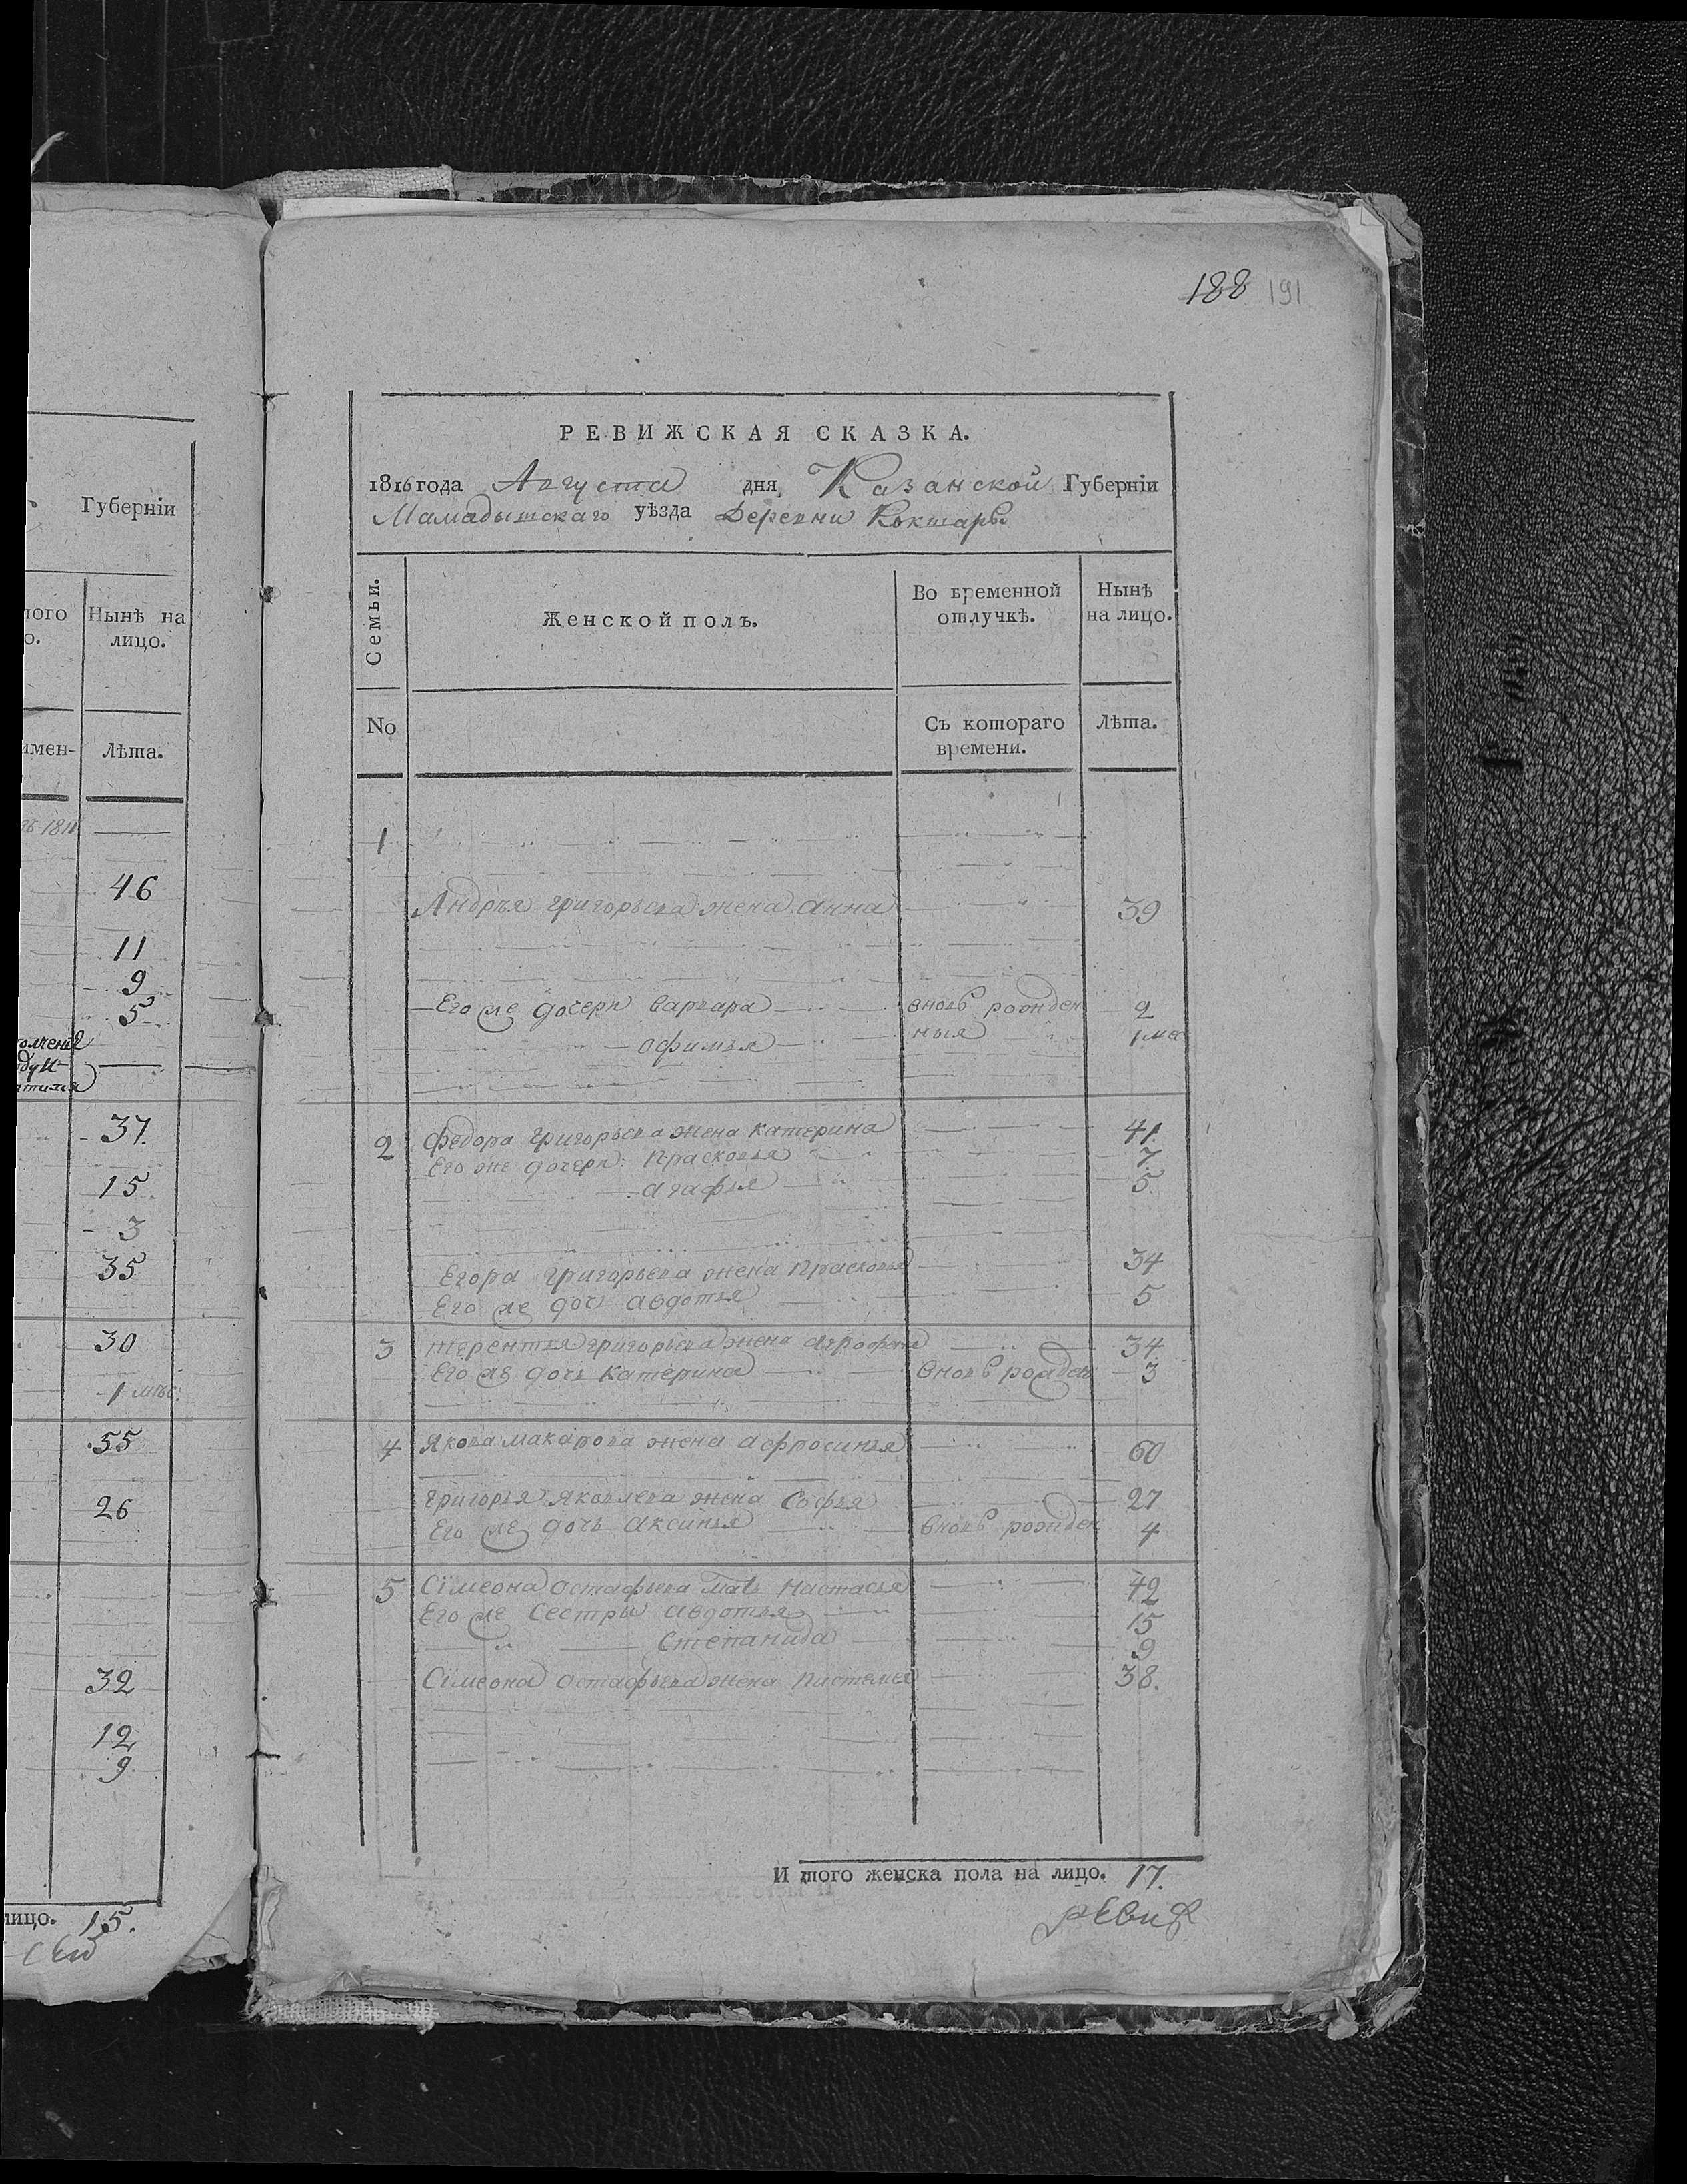 188 191
РЕВИЖСКАЯ СКАЗКА.
1816 года Августа дня, Казанской Губерніи
Мамадышскаго уѣзда Деревни Коктары
Семьи.
Женской полъ.
Во временной отлучкѣ.
Нынѣ на лицо.
No
Съ котораго времени.
Лѣта.
1
Андрѣя григорьева жена анна 39
Его же дочери варвара вновь рожден 2
офимья ныя 1 ме
2 федора григорьева жена катерина 41.
Его же дочери: прасковья 7.
агафья 5.
Егора григорьева жена прасковья 34
Его же дочь авдотья 5
3 терентья григорьева жена 34
Его же дочь катерина вновь рожден 3
4 Якова макарова жена афросинья 60
григорья яковлева жена софья 27
Его же дочь аксинья вновь рожден 4
5 Сімеона остафьева мать настасья 42
Его же сестры авдотья 15
степанида 9
Сімеона остафьева жена 38.
И того женска пола на лицо. 17.
ревиз
Губерніи
Нынѣ на
лицо.
Лѣта.
46
11
9
5
37.
15
3
35
30
1 мѣс:
55
26
32
12
9
лицо. 15.